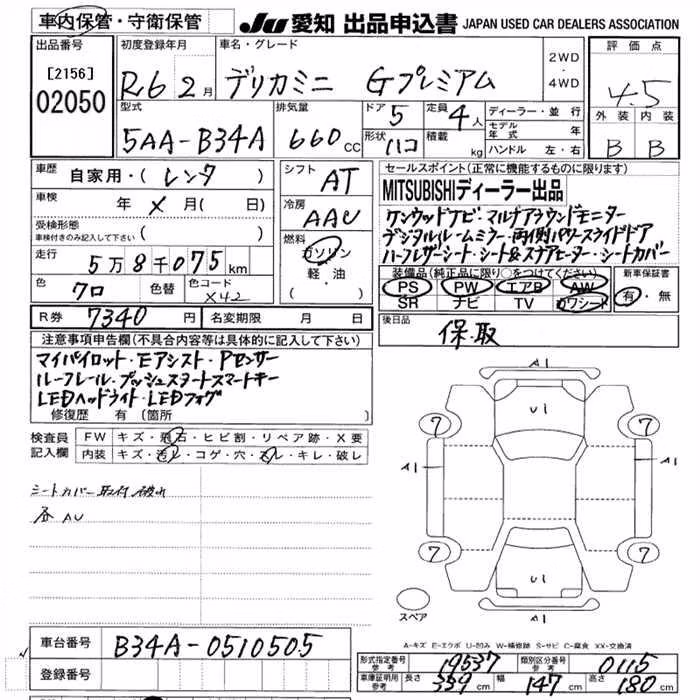 車内保管・守衛保管 JU 愛知 出品申込書 JAPAN USED CAR DEALERS ASSOCIATION
出品番号 初度登録年月 車名・グレード 2WD・4WD 評価点
[2156] 02050 R6 2月 デリカミニ Gプレミアム 4.5
型式 排気量 ドア 5 定員 4人 ディーラー・並行 外装 内装
5AA-B34A 660cc 形状 ハコ 積載 kg モデル年式 年 B B
ハンドル 左・右
車歴 自家用・(レンタ)
シフト AT
セールスポイント(正常に機能するものに限ります)
車検 年 × 月(日)
冷房 AAC
MITSUBISHIディーラー出品
受検形態 車検付きのみ記入して下さい ( )
燃料 ガソリン 軽・油 ( )
ケンウッドナビ・マルチアラウンドモニター
デジタルルームミラー・両側パワースライドドア
ハーフレザーシート・シート&ステアヒーター・シートカバー
走行 5万8千075km
装備品(純正品に限り〇をつけてください) 新車保証書
色 クロ 色替 色コード X42
PS PW エアB AW 有・無
SR ナビ TV カワシート
R券 7340円 名変期限 月 日
後日品 保・取
注意事項申告欄(不具合内容等は具体的に記入して下さい)
マイパイロット・Eアシスト・Pセンサー
ルーフレール・プッシュスタートスマートキー
LEDヘッドライト・LEDフォグ
修復歴 有(箇所
検査員記入欄 FW キズ・飛石・ヒビ割・リペア跡・X要
内装 キズ・汚レ・コゲ・穴・スレ・キレ・破レ
シートカバー取付 破れ
A1
U1
7 7
A1 A1
7 7
U1
A1
スペア
A-キズ E-エクボ U-凹み W-補修跡 S-サビ C-腐食 XX-交換済
車台番号 B34A-0510505
登録番号
形式指定番号 参考 19537 類別区分番号 参考 0115
車庫証明用 参考 長さ 339cm 幅 147cm 高さ 180cm